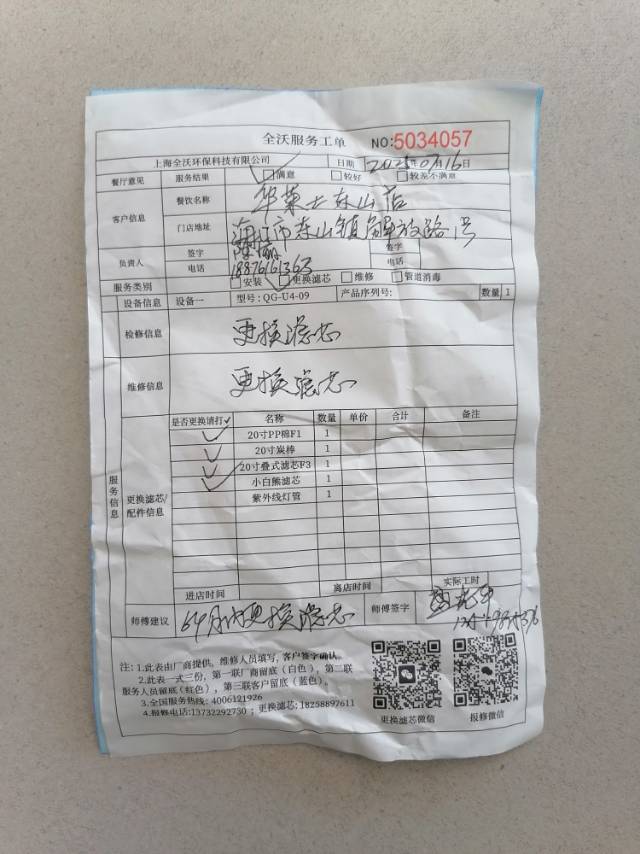 全沃服务工单 NO:5034057
上海全沃环保科技有限公司 日期 2025年07月16日
餐厅意见 服务结果 ☑满意 □较好 □较差不满意
客户信息 餐饮名称 华莱士东山店
门店地址 海口市东山镇解放路 号
负责人 签字 签字
电话 18876161363 电话
服务类别 □安装 ☑更换滤芯 □维修 □管道消毒
设备信息 设备一 型号: QG-U4-09 产品序列号: 数量 1
检修信息 更换滤芯
维修信息 更换滤芯
服务信息 更换滤芯/配件信息
是否更换请打✓ 名称 数量 单价 合计 备注
✓ 20寸PP棉F1 1
✓ 20寸炭棒 1
✓ 20寸叠式滤芯F3 1
✓ 小白熊滤芯 1
紫外线灯管 1
进店时间 离店时间 实际工时
师傅建议 6个月内更换滤芯 师傅签字
注: 1.此表由厂商提供, 维修人员填写, 客户签字确认.
2.此表一式三份, 第一联厂商留底(白色), 第二联
服务人员留底(红色), 第三联客户留底(蓝色)。
3.全国服务热线: 4006121926
4.报修电话:13732292730 ; 更换滤芯; 18258897611
更换滤芯微信 报修微信